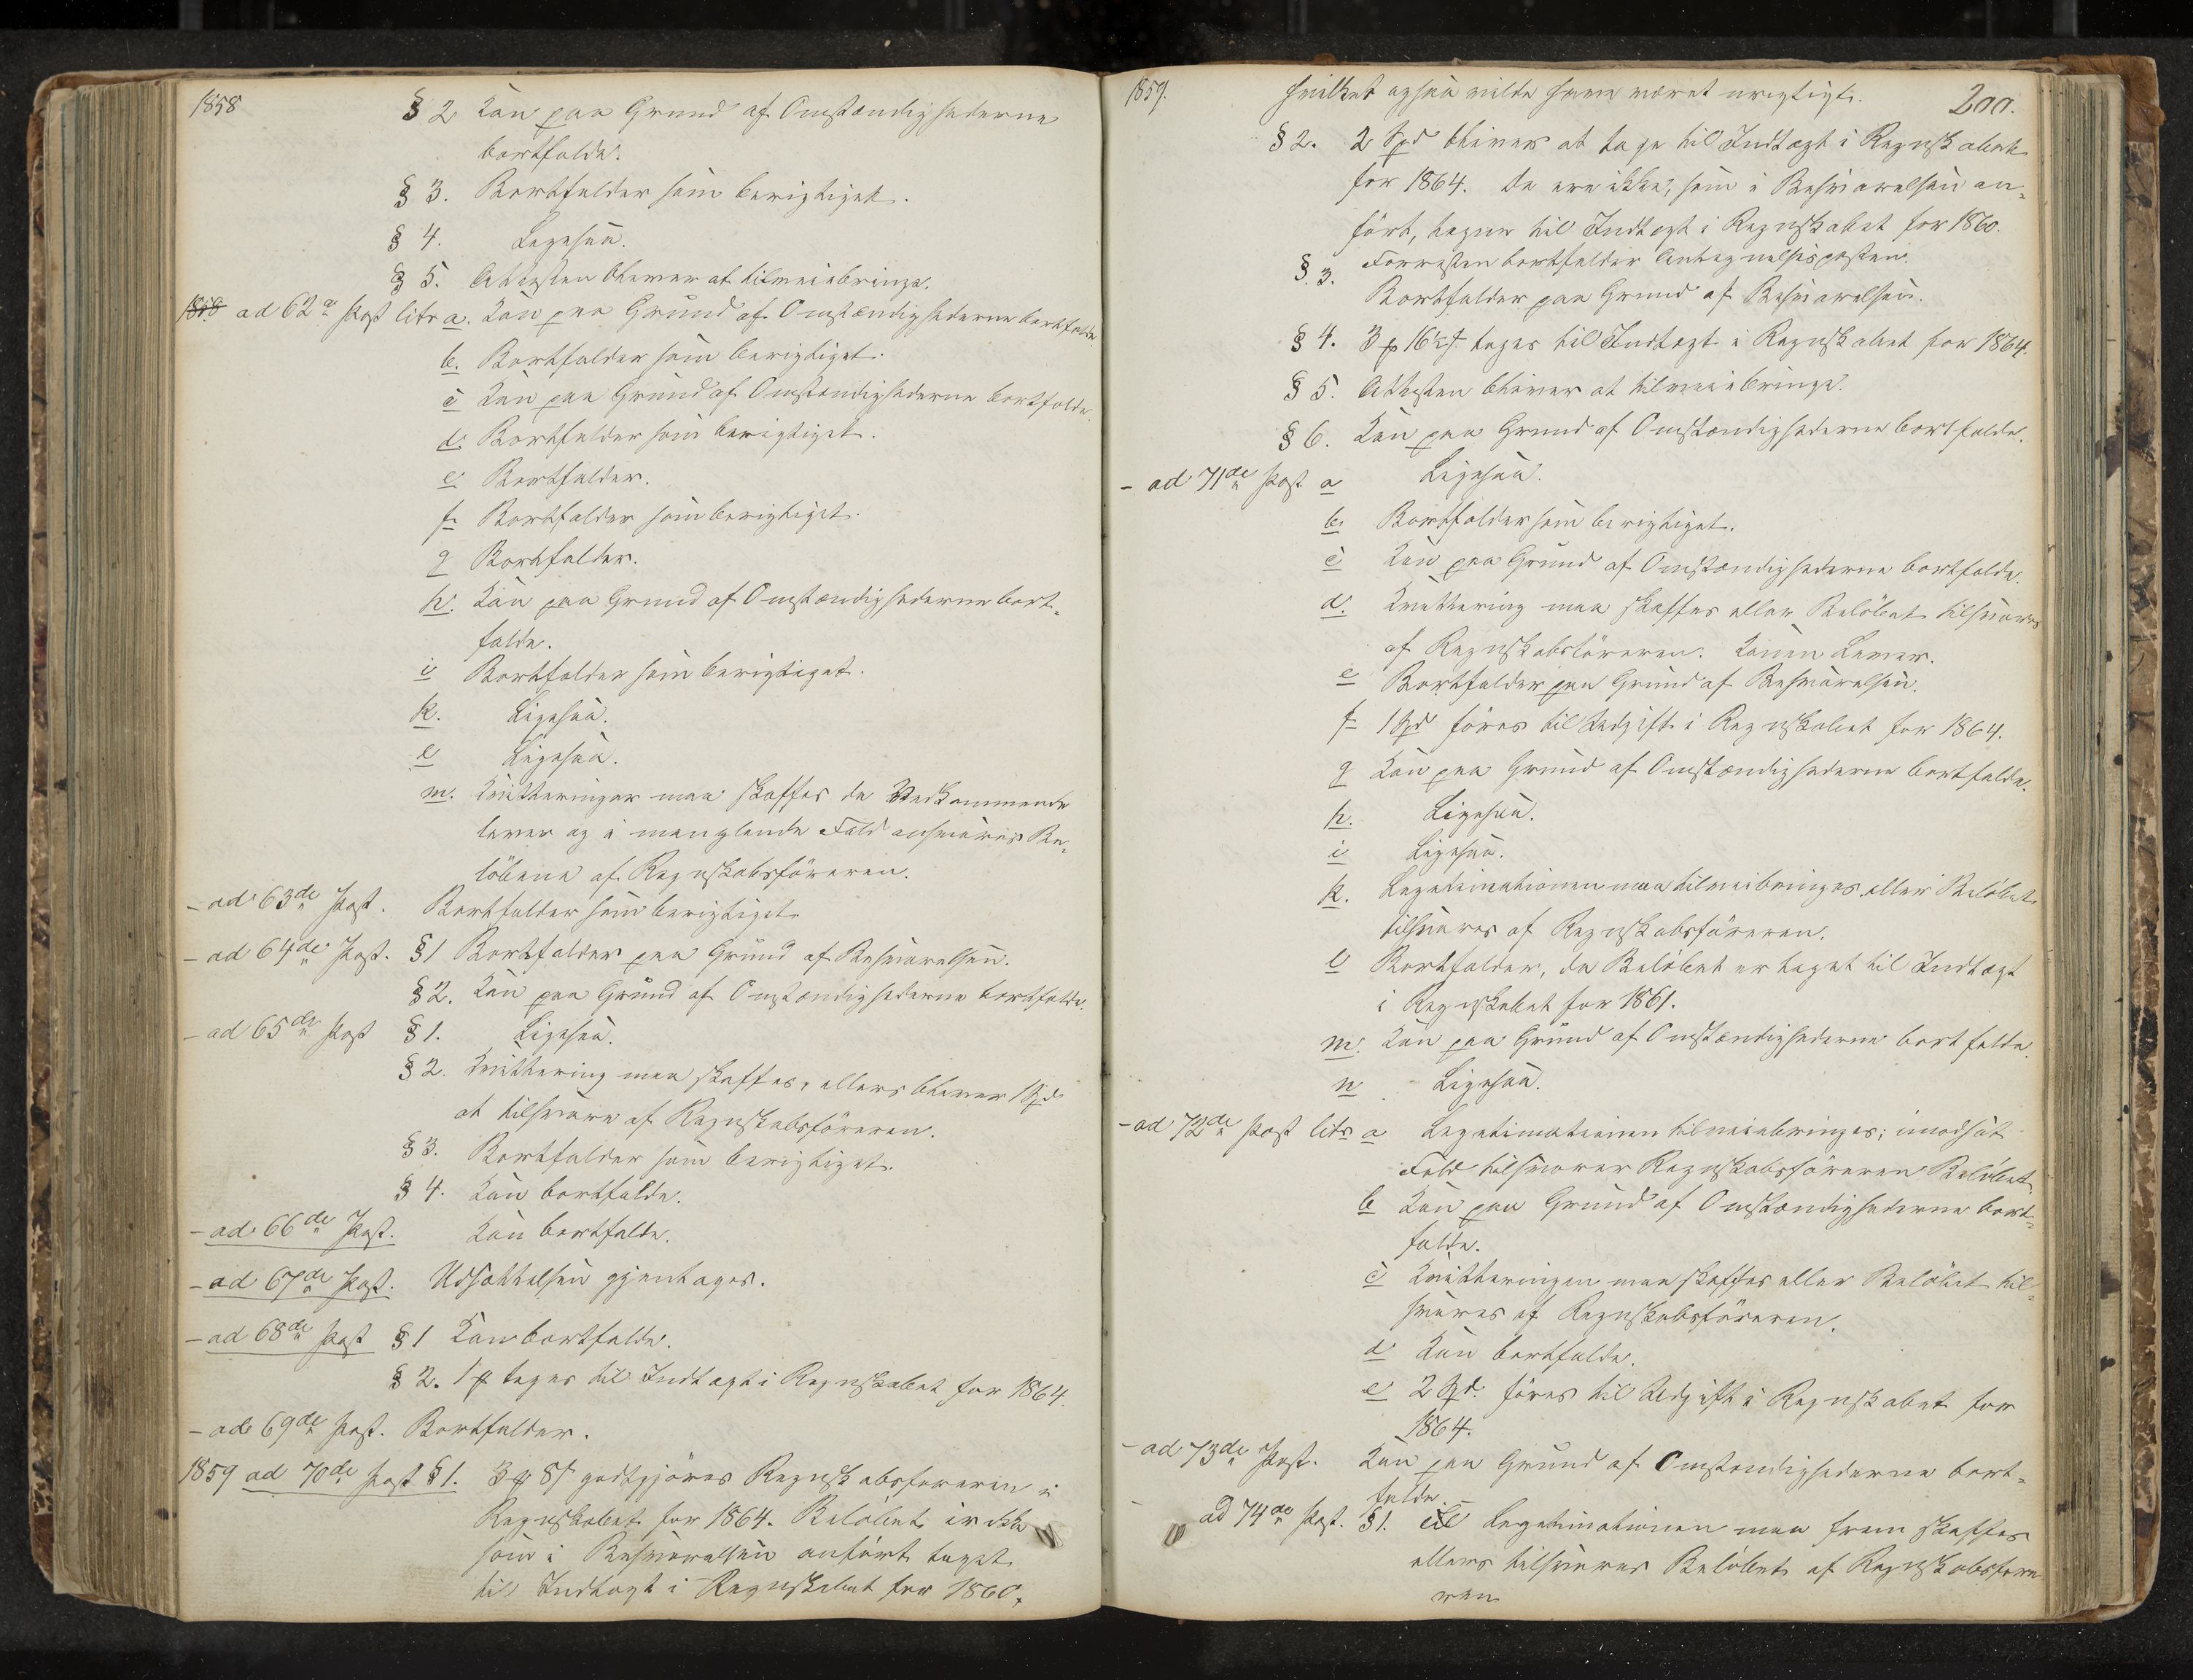 1858
§ 2 Kan paa Grund af Omstændighederne
bortfalde.
§ 3. Bortfalder som berigtiget.
§ 4. Ligesaa.
§ 5. Attesten bliver at tilveiebringe.
1858 ad 62de Post litr a. Kan paa Grund af Omstændighederne bortfalde
b. Bortfalder som berigtiget.
c Kan paa Grund af Omstændighederne bortfalde.
d. Bortfalder som berigtiget.
e Bortfalder.
f. Bortfalder som berigtiget.
g Bortfalder.
h. Kan paa Grund af Omstændighederne bort-
falde.
i Bortfalder som berigtiget.
k. Ligesaa.
l Ligesaa.
m. Kvitteringer maa skaffes da Vedkommende
lever og i manglende Fald ansvares Be-
löbene af Regnskabsföreren.
- ad 63de Post. Bortfalder som berigtiget
- ad 64de Post. § 1 Bortfalder paa Grund af Besvarelsen.
§ 2. Kan paa Grund af Omstændighederne bortfalde.
- ad 65de Post § 1. Ligesaa.
§ 2. Kvittering maa skaffes, ellers bliver 1 Spd
at tilsvare af Regnskabsföreren.
§ 3. Bortfalder som berigtiget.
§ 4. Kan bortfalde.
- ad 66de Post. Kan bortfalde.
- ad 67de Post. Udsættelsen gjentages.
- ad 68de Post § 1 Kan bortfalde.
§ 2. 1 tages til Indtægt i Regnskabet for 1864.
- ad 69de Post. Bortfalder.
1859 ad 70de Post § 1. 3 8 godtgjöres Regnskabsföreren i
Regnskabet for 1864. Belöbet er ikke
som i Besvarelsen anfört taget
til Indtægt i Regnskabet for 1860,
1859.
hvilket ogsaa vilde have været urigtigt.
200.
§ 2. 2 Spd bliver at tage til Indtægt i Regnskabet
for 1864. De ere ikke, som i Besvarelsen an-
fört, tagne til Indtægt i Regnskabet for 1860.
Forresten bortfalder Antegnelsesposten.
§. 3. Bortfalder paa Grund af Besvarelsen.
§ 4. 3 16 tages til Indtægt i Regnskabet for 1864.
§ 5. Attesten bliver at tilveiebringe.
§ 6. Kan paa Grund af Omstændighederne bortfalde.
- ad 71de Post a Ligesaa.
b. Bortfalder som berigtiget.
c Kan paa Grund af Omstændighederne bortfalde.
d. Kvittering maa skaffes eller Belöbet tilsvares
af Regnskabsföreren. Konen Lever.
e Bortfalder paa Grund af Besvarelsen.
f 1 Spd föres til Udgift i Regnskabet for 1864.
g Kan paa Grund af Omstændighederne bortfalde.
h. Ligesaa.
i Ligesaa.
k. Legitimationen maa tilveibringes eller Belöbet
tilsvares af Regnskabsföreren.
l Bortfalder, da Belöbet er taget til Indtægt
i Regnskabet for 1861.
m. Kan paa Grund af Omstændighederne bortfalde.
n Ligesaa.
- ad 72de Post litr a Legitimationen tilveiebringes; imodsat
Fald tilsvarer Regnskabsföreren Belöbet.
b Kan paa Grund af Omstændighederne bort-
falde.
c Kvitteringen maa skaffes eller Belöbet til-
svares af Regnskabsföreren.
d Kan bortfalde.
e 2 Spd. föres til Udgift i Regnskabet for
1864.
- ad 73de Post. Kan paa Grund af Omstændighederne bort-
falde.
- ad 74de Post. § 1. Legitimationen maa fremskaffes
ellers tilsvares Belöbet af Regnskabsföre
ren